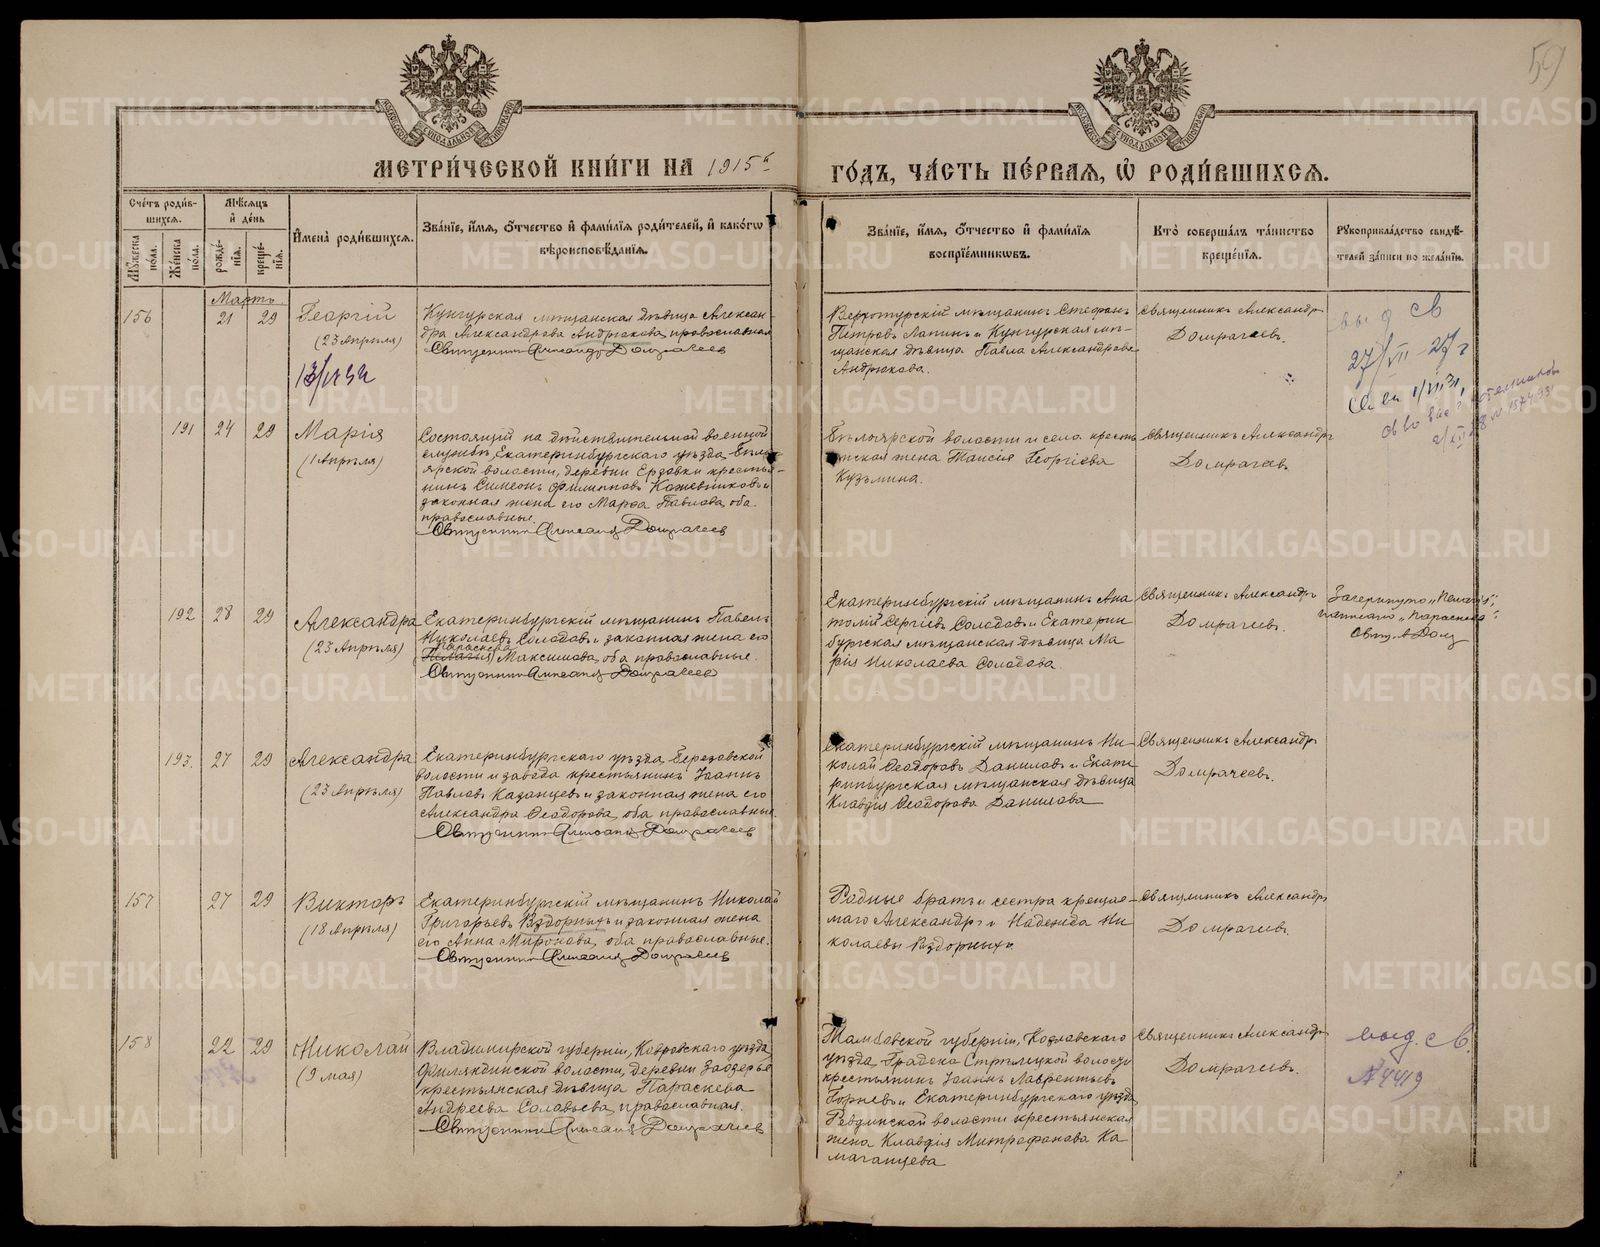 59
МЕТРИ́ЧЕСКОЙ КНИ́ГИ НА 1915й ГО́ДЪ, ЧА́СТЬ ПЕ́РВАЯ, Ѡ҆ РОДИ́ВШИХСЯ.
Сче́тъ роди́вшихся.
Мꙋ́жеска по́ла.
Же́нска по́ла.
Мѣ́сяцъ и҆ де́нь
рожде́нїя.
креще́нїя.
И҆мена̀ роди́вшихся.
Зва́нїе, и҆́мя, ѻ҆́тчество и҆ фами́лїя роди́телей, и҆ како́гѡ
вѣроисповѣ́данїя.
Зва́нїе, и҆́мя, ѻ҆́тчество и҆ фами́лїя
воспрїе́мникѡвъ.
Кто̀ соверша́лъ та́инство
креще́нїя.
Рꙋкоприкла́дство свидѣ́-
телей за́писи по жела́нїю.
Мартъ
156
21
29
Георгій
(23 Апрѣля)
Кунгурская мѣщанская дѣвица Алексан-
дра Александрова Андрюкова, православная
Священникъ Александръ Домрачеев
Верхотурскій мѣщанинъ Стефанъ
Петровъ Лапинъ и Кунгурская мѣ-
щанская дѣвица Павла Александрова
Андрюкова.
Священникъ Александръ
Домрачеевъ.
выд св
27/VII
191
24
29
Марія
(1 Апрѣля)
Состоящій на дѣйствительной военной
службѣ, Екатеринбургскаго уѣзда, Бѣло-
ярской волости, деревни Ерзовки крестья-
нинъ Симеонъ Филипповъ Кожевниковъ и
законная жена его Марѳа Павлова, оба
православные.
Священникъ Александръ Домрачеев
Бѣлоярской волости и села кресть-
янская жена Таисія Георгіева
Кузьмина.
Священникъ Александръ
Домрачеевъ
192
28
29
Александра
(23 Апрѣля)
Екатеринбургскій мѣщанинъ Павелъ
Николаевъ Солодовъ и законная жена его
Параскева
(Пелагія) Максимова, оба православные.
Священникъ Александръ Домрачеев
Екатеринбургскій мѣщанинъ Ана-
толій Сергѣевъ Солодовъ и Екатерин-
бургская мѣщанская дѣвица Ма-
рія Николаева Солодова.
Священникъ Александръ
Домрачеевъ.
Зачеркнуто „Пелагія";
написано „Параскева".
Свящ. А Дом
193.
27
29
Александра
(23 Апрѣля)
Екатеринбургскаго уѣзда, Березовской
волости и завода крестьянинъ Іоаннъ
Павловъ Казанцевъ и законная жена его
Александра Ѳеодорова, оба православные.
Священникъ Александръ Домрачеев
Екатеринбургскій мѣщанинъ Ни-
колай Ѳеодоровъ Даниловъ и Екате-
ринбургская мѣщанская дѣвица
Клавдія Ѳеодорова Данилова
Священникъ Александръ
Домрачеевъ.
157
27
29
Викторъ
(18 Апрѣля)
Екатеринбургскій мѣщанинъ Николай
Григорьевъ Вздорныхъ и законная жена
его Анна Миронова, оба православные.
Священникъ Александръ Домрачеев
Родные братъ и сестра крещае-
маго Александръ и Надежда Ни-
колаевы Вздорныхъ.
Священникъ Александръ
Домрачеевъ.
158
22
29
Николай
(9 мая)
Владимирской губерніи, Ковровскаго уѣзда,
Филяндинской волости, деревни Заозерье
крестьянская дѣвица Параскева
Андреева Соловьева, православная.
Священникъ Александръ Домрачеев
Тамбовской губерніи, Козловскаго
уѣзда, Градско Стрѣлецкой волости
крестьянинъ Іоаннъ Лаврентьевъ
Горневъ и Екатеринбургскаго уѣзда
Ревдинской волости крестьянская
жена Клавдія Митрофанова Ка-
маганцева
Священникъ Александръ
Домрачеевъ.
выд. св.
№ 4419
METRIKI.GASO-URAL.RU